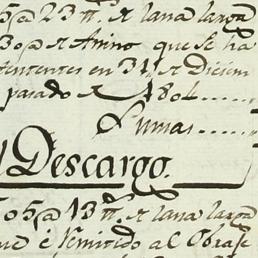 5@ 23 tt. de lana larga
30@ de Anino que se ha
tentes en 31 de Diciem
pasado de 180
Sumas
Descargo.
505@ 13 tt. de lana larga
que é remitido al Obraje